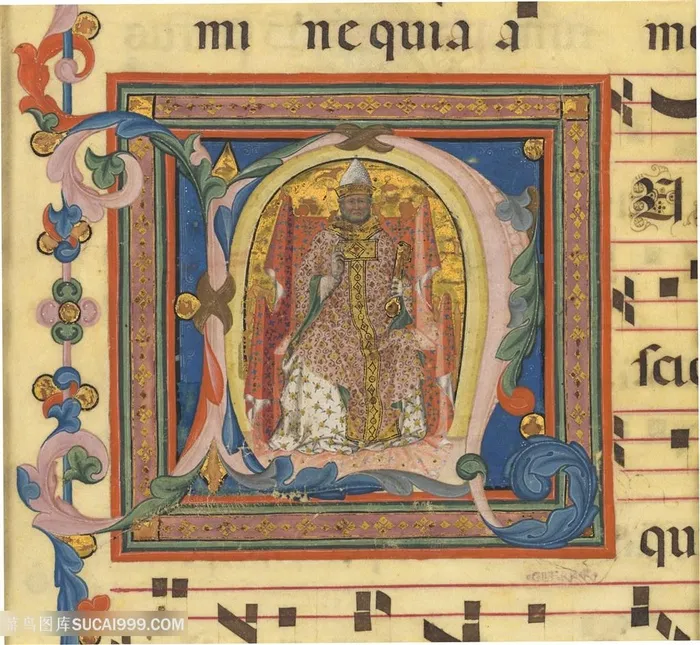 mi nequia a mo
scio
qu
菜鸟图库SUCAI999.COM